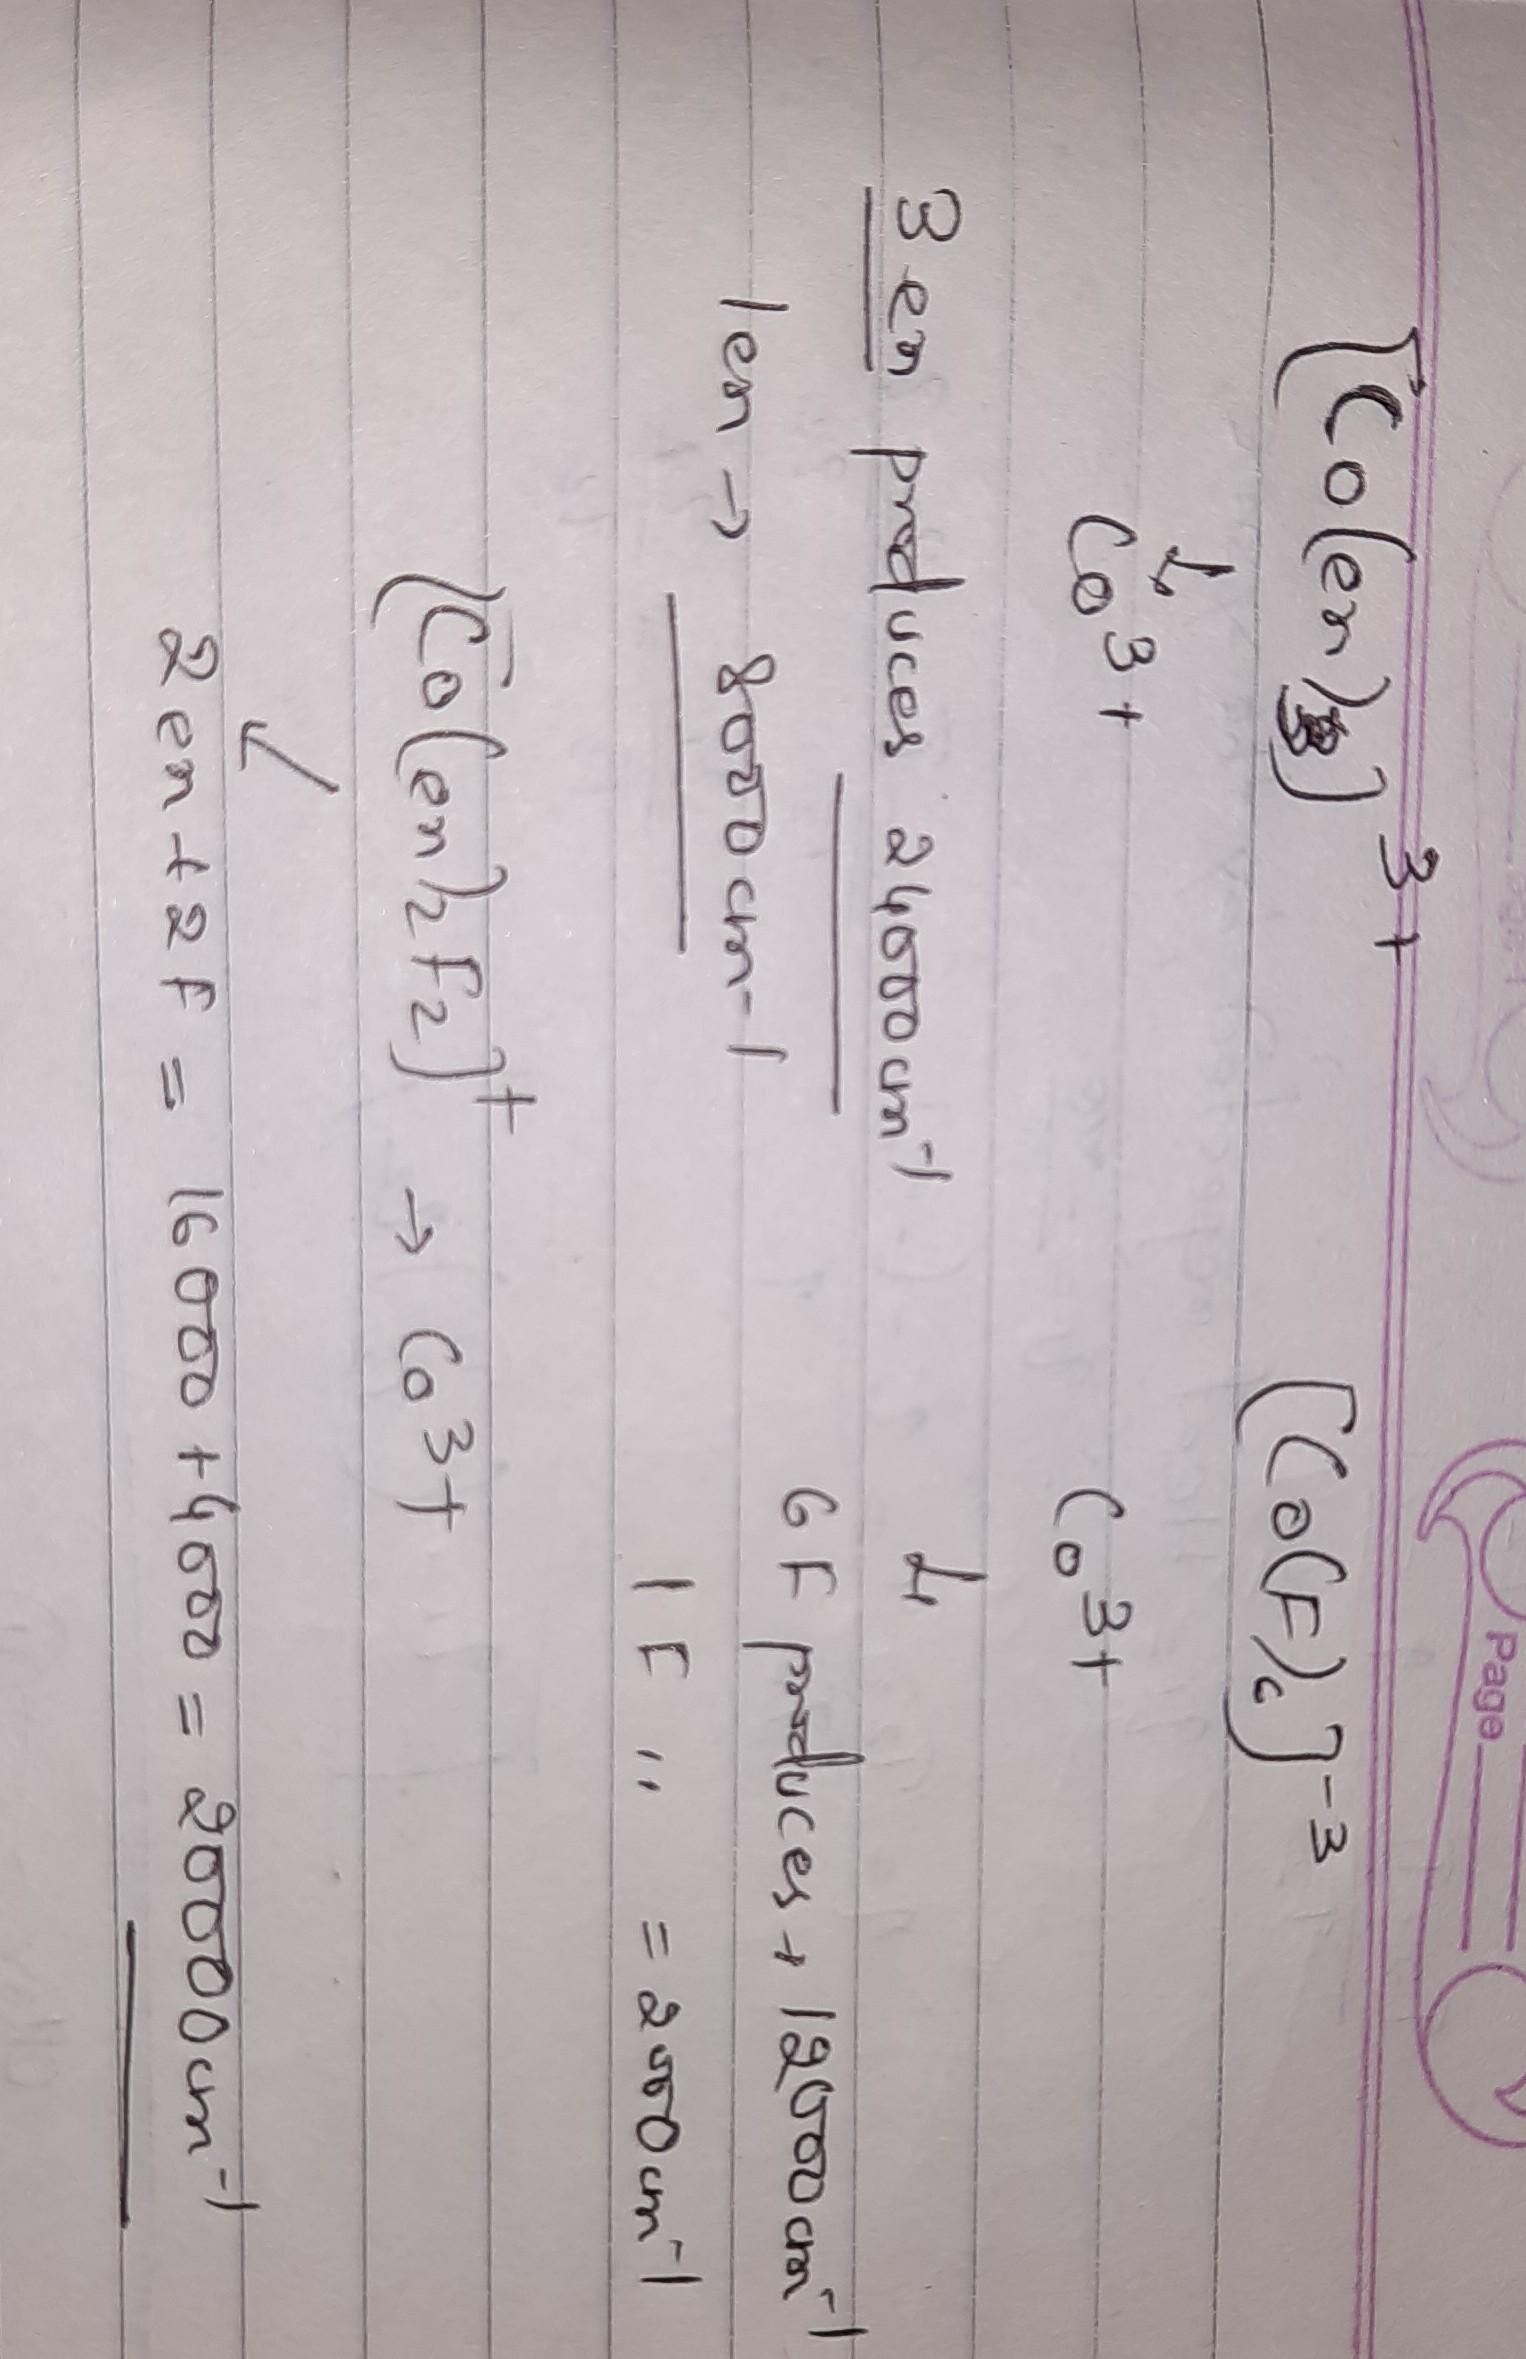 Page
[Co(en)3]3+ [Co(F)6]-3
↳ Co3+ Co3+
3 en produces 24000cm-1 ↳
6 F produces → 12000cm-1
1en → 8000cm-1
1 F " = 2000cm-1
[Co(en)2F2]+ → Co3+
2en+2F = 16000+4000 = 20000cm-1